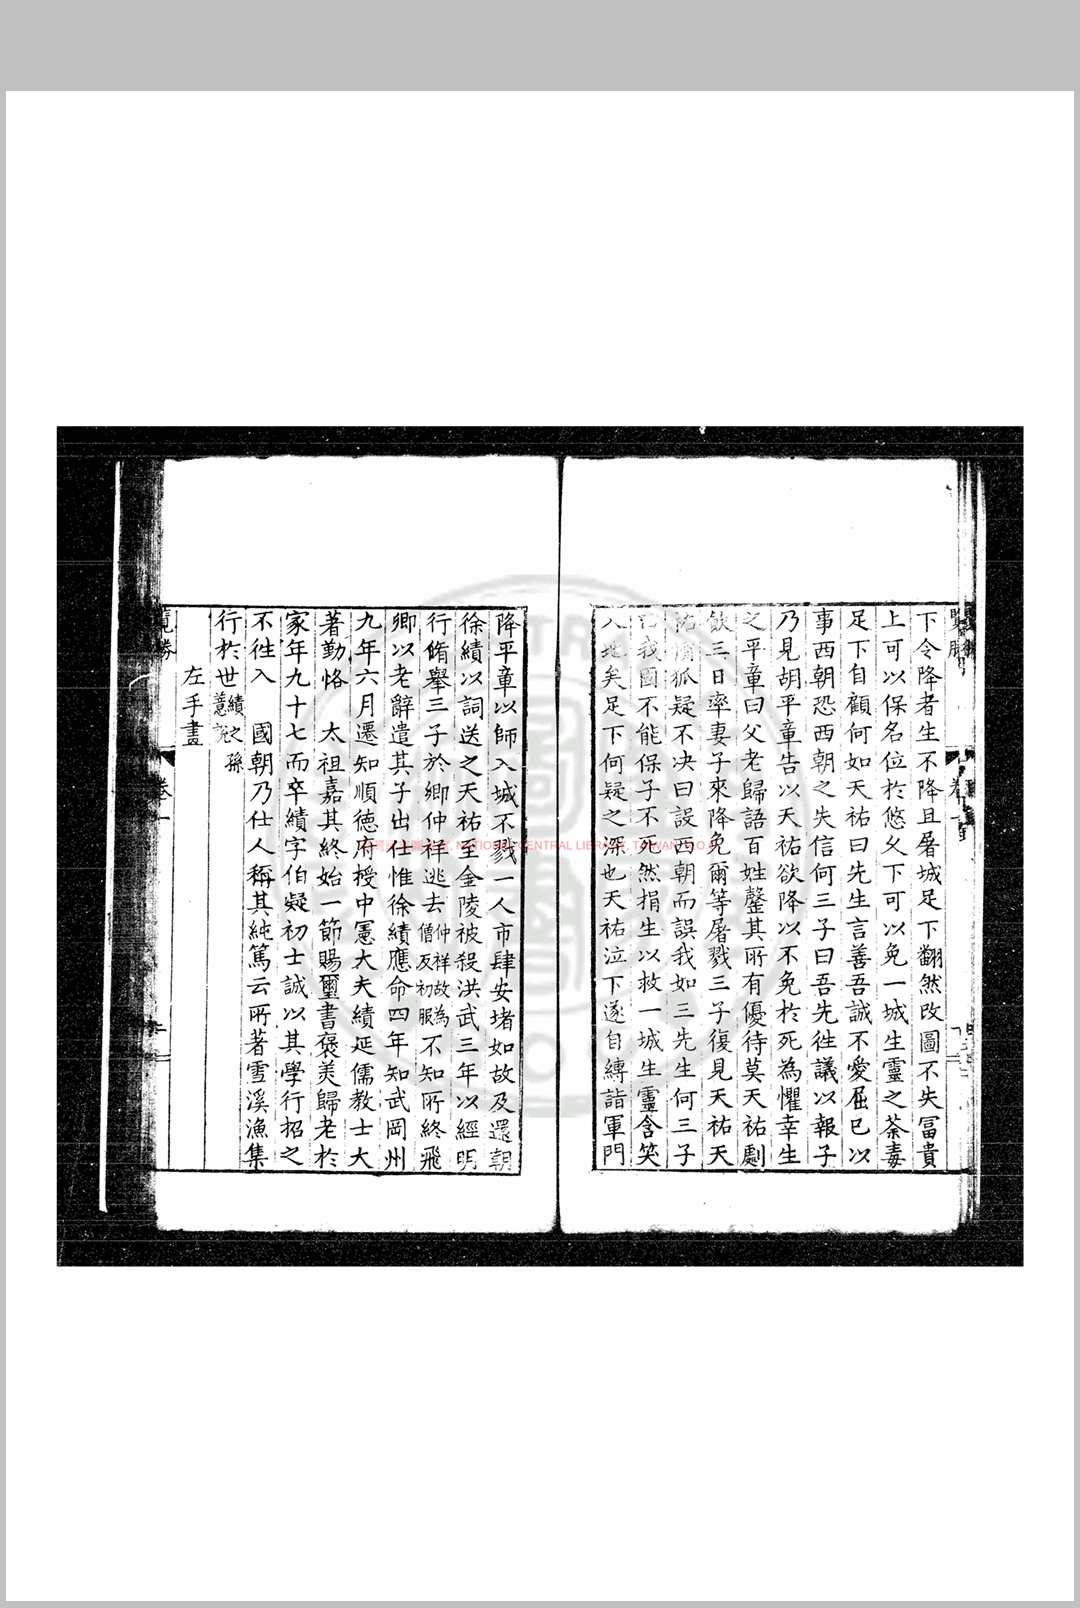 下令降者生不降且屠城足下翻然改圖不失冨貴
上可以保名位於悠久下可以免一城生靈之荼毒
足下自顧何如天祐曰先生言善吾誠不愛屈已以
事西朝恐西朝之失信何三子曰吾先徃議以報子
乃見胡平章告以天祐欲降以不免於死為懼幸生
之平章曰父老歸語百姓罄其所有優待莫天祐劇
飲三日率妻子來降免爾等屠戮三子復見天祐天
祐猶狐疑不决曰設西朝而誤我如三先生何三子
曰我固不能保子不死然捐生以救一城生靈含笑
入地矣足下何疑之深也天祐泣下遂自縛詣軍門
降平章以師入城不戮一人市肆安堵如故及還朝
徐績以詞送之天祐至金陵被殺洪武三年以經明
行脩舉三子於鄉仲祥逃去仲祥故為僧及初服不知所終飛
卿以老辭遣其子出仕惟徐績應命四年知武岡州
九年六月遷知順德府授中憲大夫績延儒教士大
著勤恪 太祖嘉其終始一節賜璽書褒美歸老於
家年九十七而卒績字伯凝初士誠以其學行招之
不徃入 國朝乃仕人稱其純篤云所著雪溪漁集
行於世績之孫蕙說
左手畫
覽勝
卷一
NATIONAL CENTRAL LIBRARY, TAIWAN, R.O.C